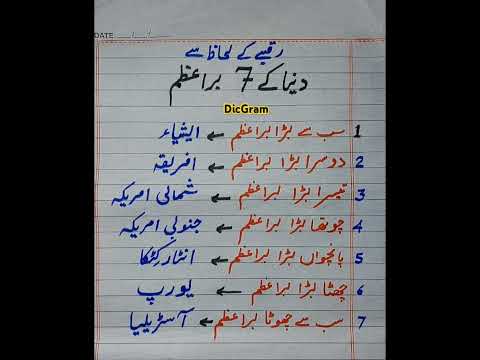 DATE __/__/__
رقبے کے لحاظ سے
دنیا کے 7 براعظم
DicGram
1 سب سے بڑا براعظم ← ایشیاء
2 دوسرا بڑا براعظم ← افریقہ
3 تیسرا بڑا براعظم ← شمالی امریکہ
4 چوتھا بڑا براعظم ← جنوبی امریکہ
5 پانچواں بڑا براعظم ← انٹارکٹکا
6 چھٹا بڑا براعظم ← یورپ
7 سب سے چھوٹا براعظم ← آسٹریلیا